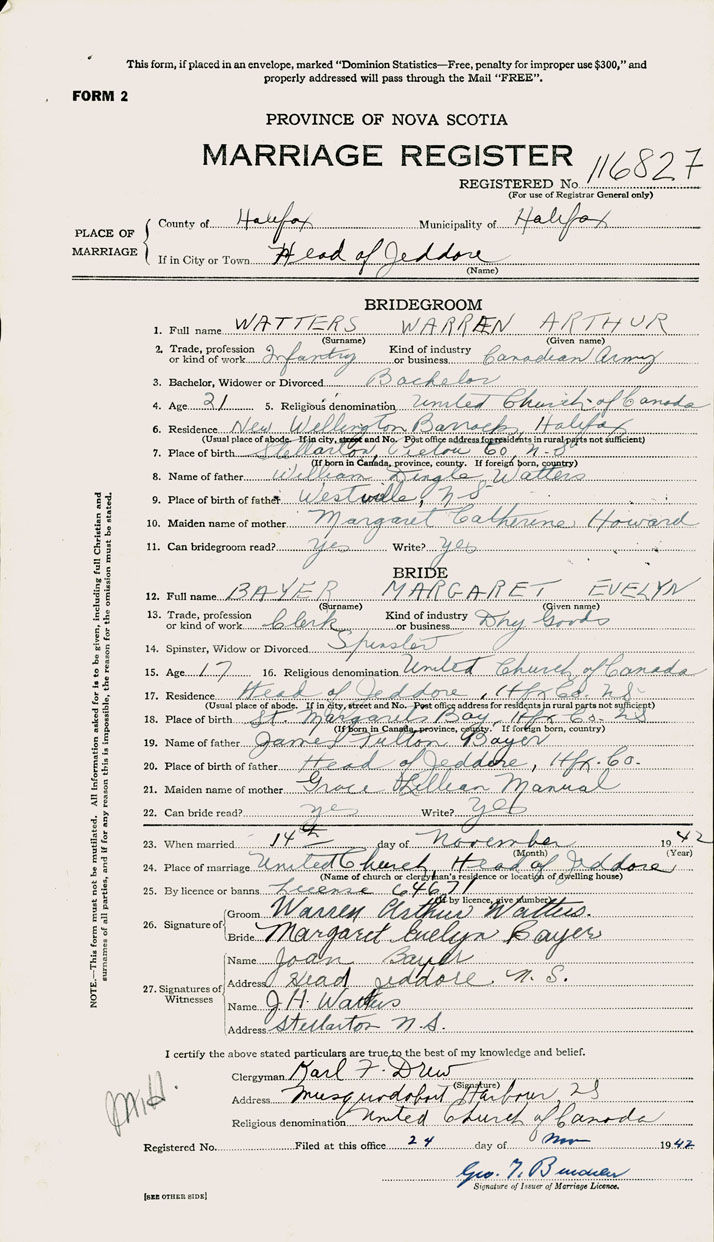 This form, if placed in an envelope, marked "Dominion Statistics—Free, penalty for improper use $300," and
properly addressed will pass through the Mail "FREE".
FORM 2
PROVINCE OF NOVA SCOTIA
MARRIAGE REGISTER
REGISTERED No. 116827
(For use of Registrar General only)
PLACE OF MARRIAGE
County of Halifax Municipality of Halifax
If in City or Town Head of Jeddore
(Name)
BRIDEGROOM
1. Full name WATTERS WARREN ARTHUR
(Surname) (Given name)
2. Trade, profession or kind of work Infantry Kind of industry or business Canadian Army
3. Bachelor, Widower or Divorced Bachelor
4. Age 21 5. Religious denomination United Church of Canada
6. Residence New Wellington Barracks, Halifax
(Usual place of abode. If in city, street and No. Post office address for residents in rural parts not sufficient)
7. Place of birth Stellarton, Pictou Co, N-S
(If born in Canada, province, county. If foreign born, country)
8. Name of father William Dingle Watters
9. Place of birth of father Westville, N-S
10. Maiden name of mother Margaret Catherine Howard
11. Can bridegroom read? yes Write? yes
BRIDE
12. Full name BAYER MARGARET EVELYN
(Surname) (Given name)
13. Trade, profession or kind of work Clerk Kind of industry or business Dry Goods
14. Spinster, Widow or Divorced Spinster
15. Age 17 16. Religious denomination United Church of Canada
17. Residence Head of Jeddore, Hfx Co. NS
(Usual place of abode. If in city, street and No. Post office address for residents in rural parts not sufficient)
18. Place of birth St. Margarets Bay, Hfx Co. NS
(If born in Canada, province, county. If foreign born, country)
19. Name of father James Fulton Bayer
20. Place of birth of father Head of Jeddore, Hfx. Co.
21. Maiden name of mother Grace Lillian Manual
22. Can bride read? yes Write? yes
23. When married 14th day of November 1942
(Month) (Year)
24. Place of marriage United Church, Head of Jeddore
(Name of church or clergyman's residence or location of dwelling house)
25. By licence or banns License 64671
(If by licence, give number)
26. Signature of
Groom Warren Arthur Watters.
Bride Margaret Evelyn Bayer
27. Signatures of Witnesses
Name Joan Bayer
Address Head Jeddore, N. S.
Name J. H. Watters
Address Stellarton N.S.
I certify the above stated particulars are true to the best of my knowledge and belief.
Clergyman Karl F. Drew
(Signature)
Address Musquodoboit Harbour, NS
Religious denomination United Church of Canada
Registered No. Filed at this office 24 day of Nov 1942
Geo. T.
Signature of Issuer of Marriage Licence.
[SEE OTHER SIDE]
NOTE.—This form must not be mutilated. All information asked for is to be given, including full Christian and
surnames of all parties, and if for any reason this is impossible, the reason for the omission must be stated.